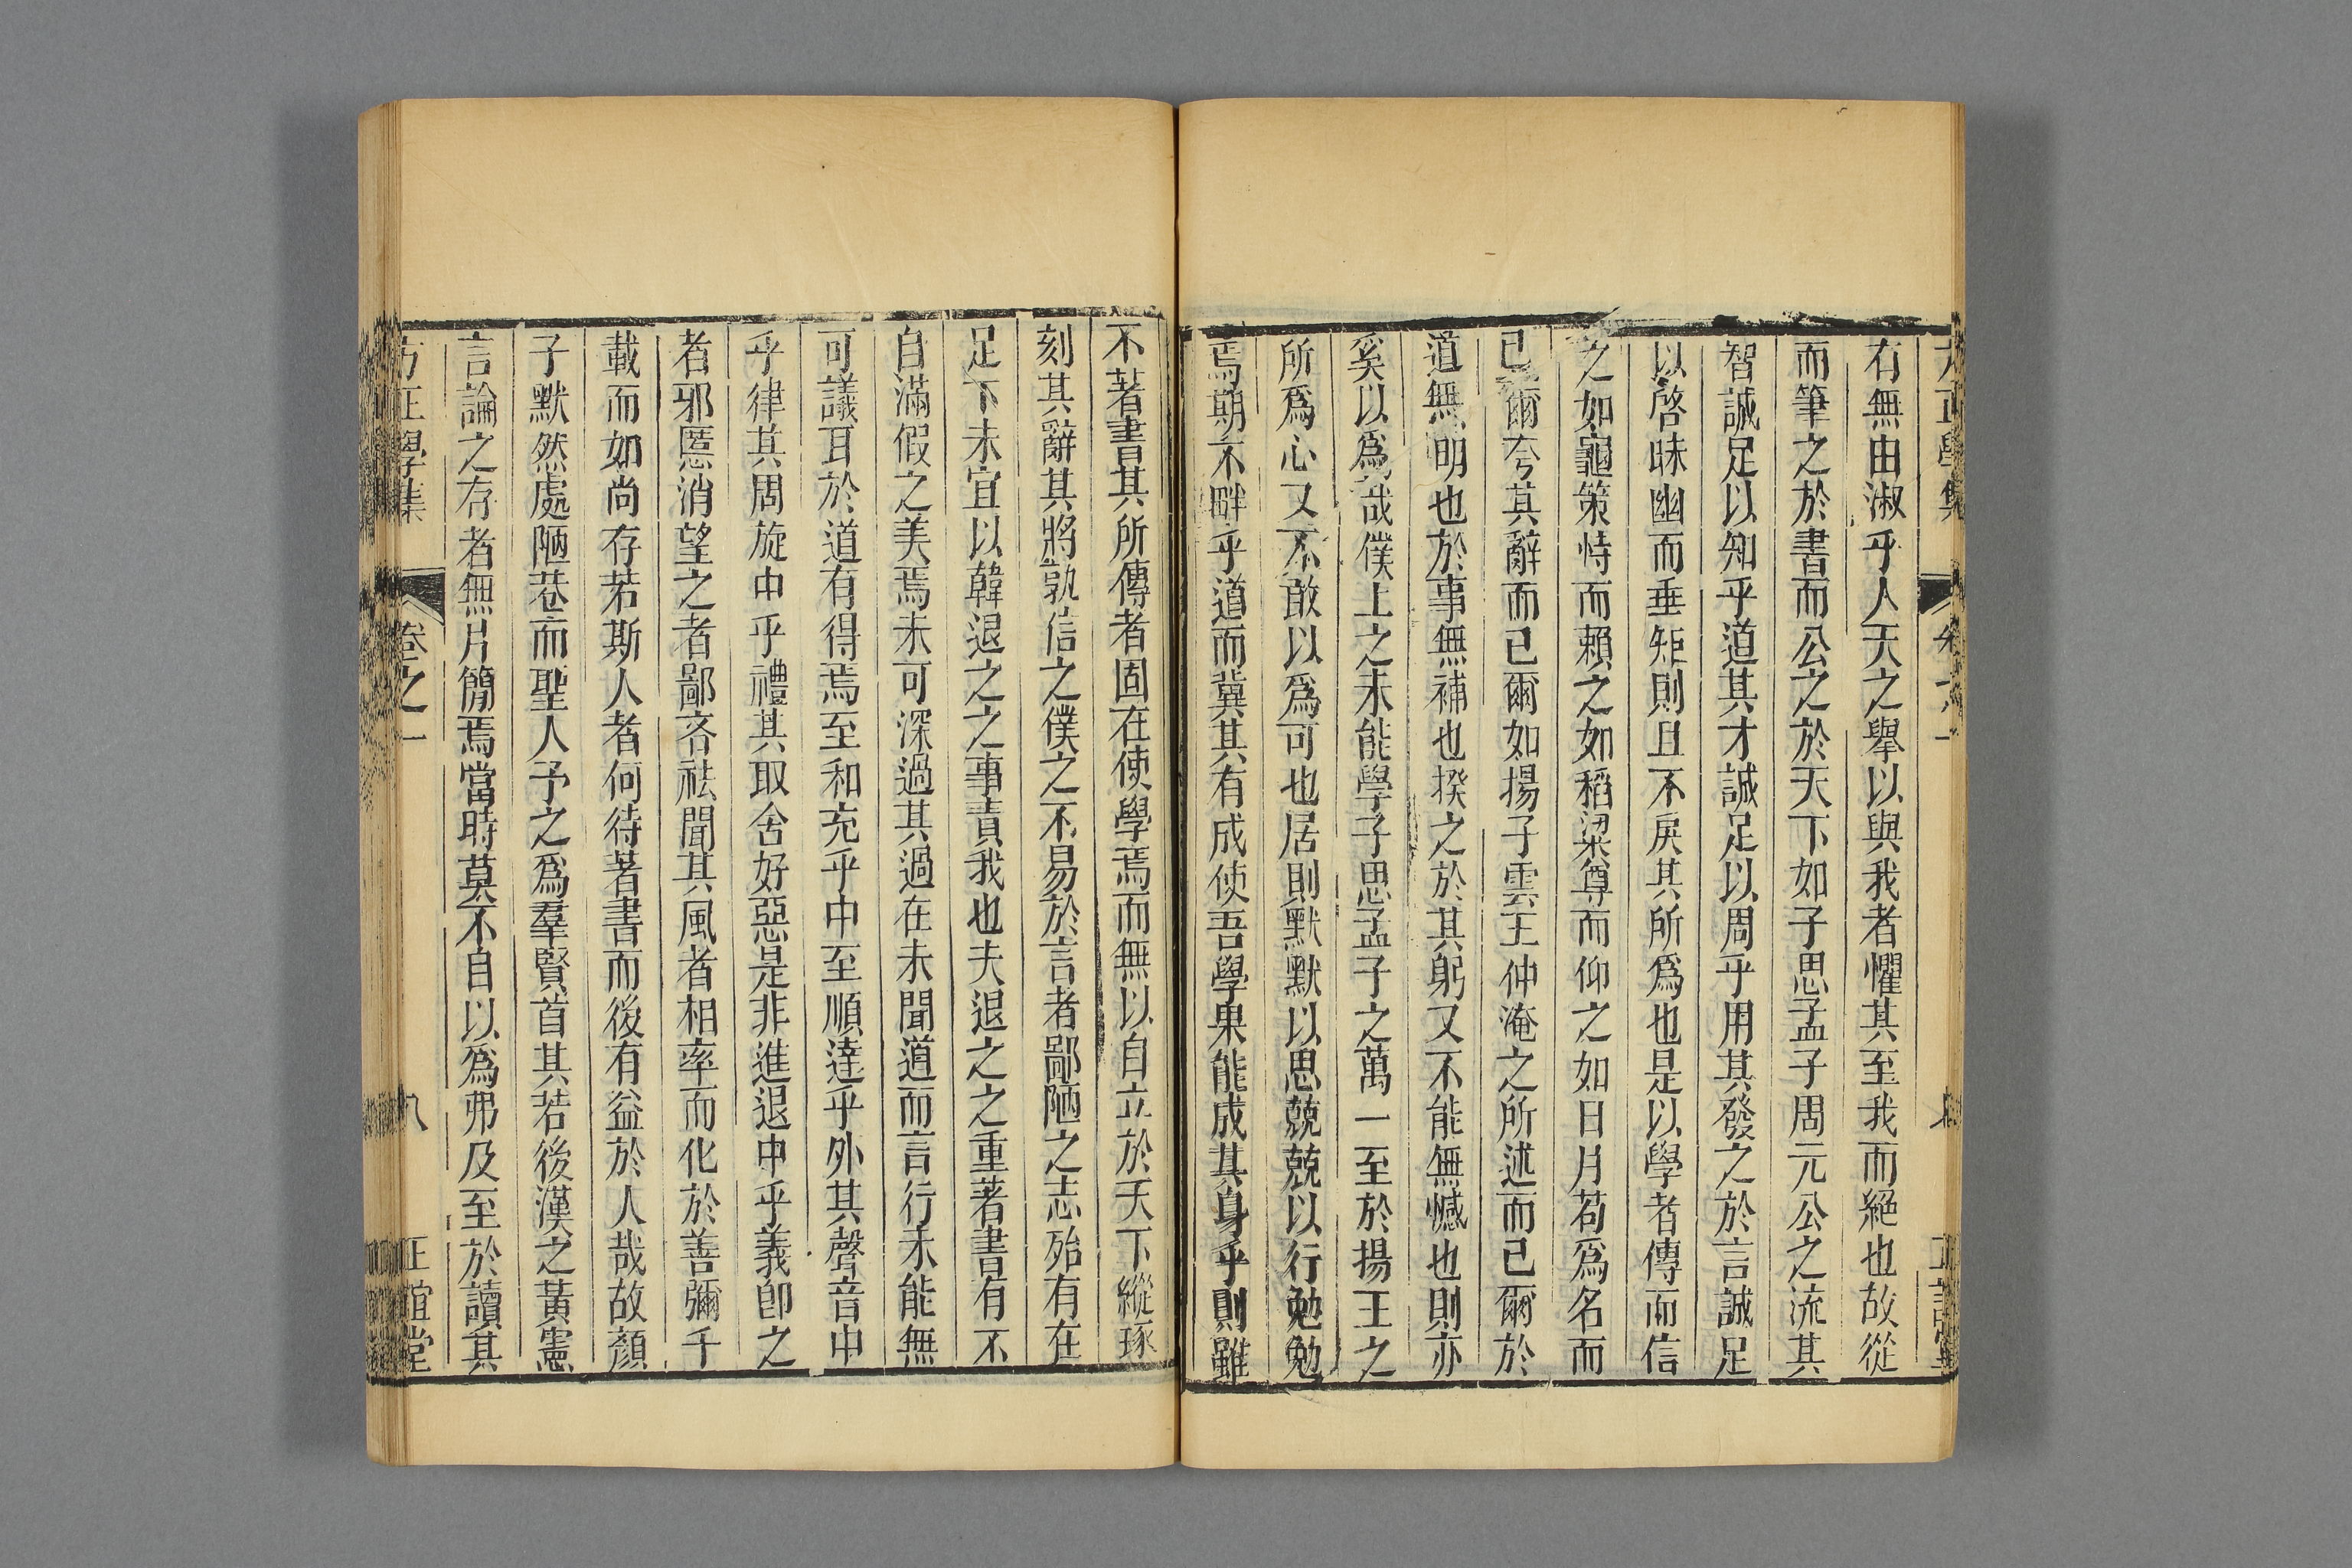 有無由淑乎人天之舉以與我者懼其至我而絕也故從
而筆之於書而公之於天下如子思孟子周元公之流其
智誠足以知乎道其才誠足以周乎用其發之於言誠足
以啓昧幽而垂矩則且不戾其所爲也是以學者傳而信
之如龜策恃而賴之如稻粱尊而仰之如日月苟爲名而
已爾夸其辭而已爾如揚子雲王仲淹之所述而已爾於
道無明也於事無補也揆之於其躬又不能無憾也則亦
奚以爲哉僕上之未能學子思孟子之萬一至於揚王之
所爲心又不敢以爲可也居則默默以思兢兢以行勉勉
焉期不畔乎道而冀其有成使吾學果能成其身乎則雖
不著書其所傳者固在使學焉而無以自立於天下縱琢
刻其辭其將孰信之僕之不易於言者鄙陋之志殆有在
足下未宜以韓退之之事責我也夫退之之重著書有不
自滿假之美焉未可深過其過在未聞道而言行未能無
可議耳於道有得焉至和充乎中至順達乎外其聲音中
乎律其周旋中乎禮其取舍好惡是非進退中乎義卽之
者邪慝消望之者鄙吝祛聞其風者相率而化於善彌千
載而如尚存若斯人者何待著書而後有益於人哉故顏
子默然處陋巷而聖人予之爲羣賢首其若後漢之黃憲
言論之存者無片簡焉當時莫不自以爲弗及至於讀其
方正學集 卷之一 八 正誼堂